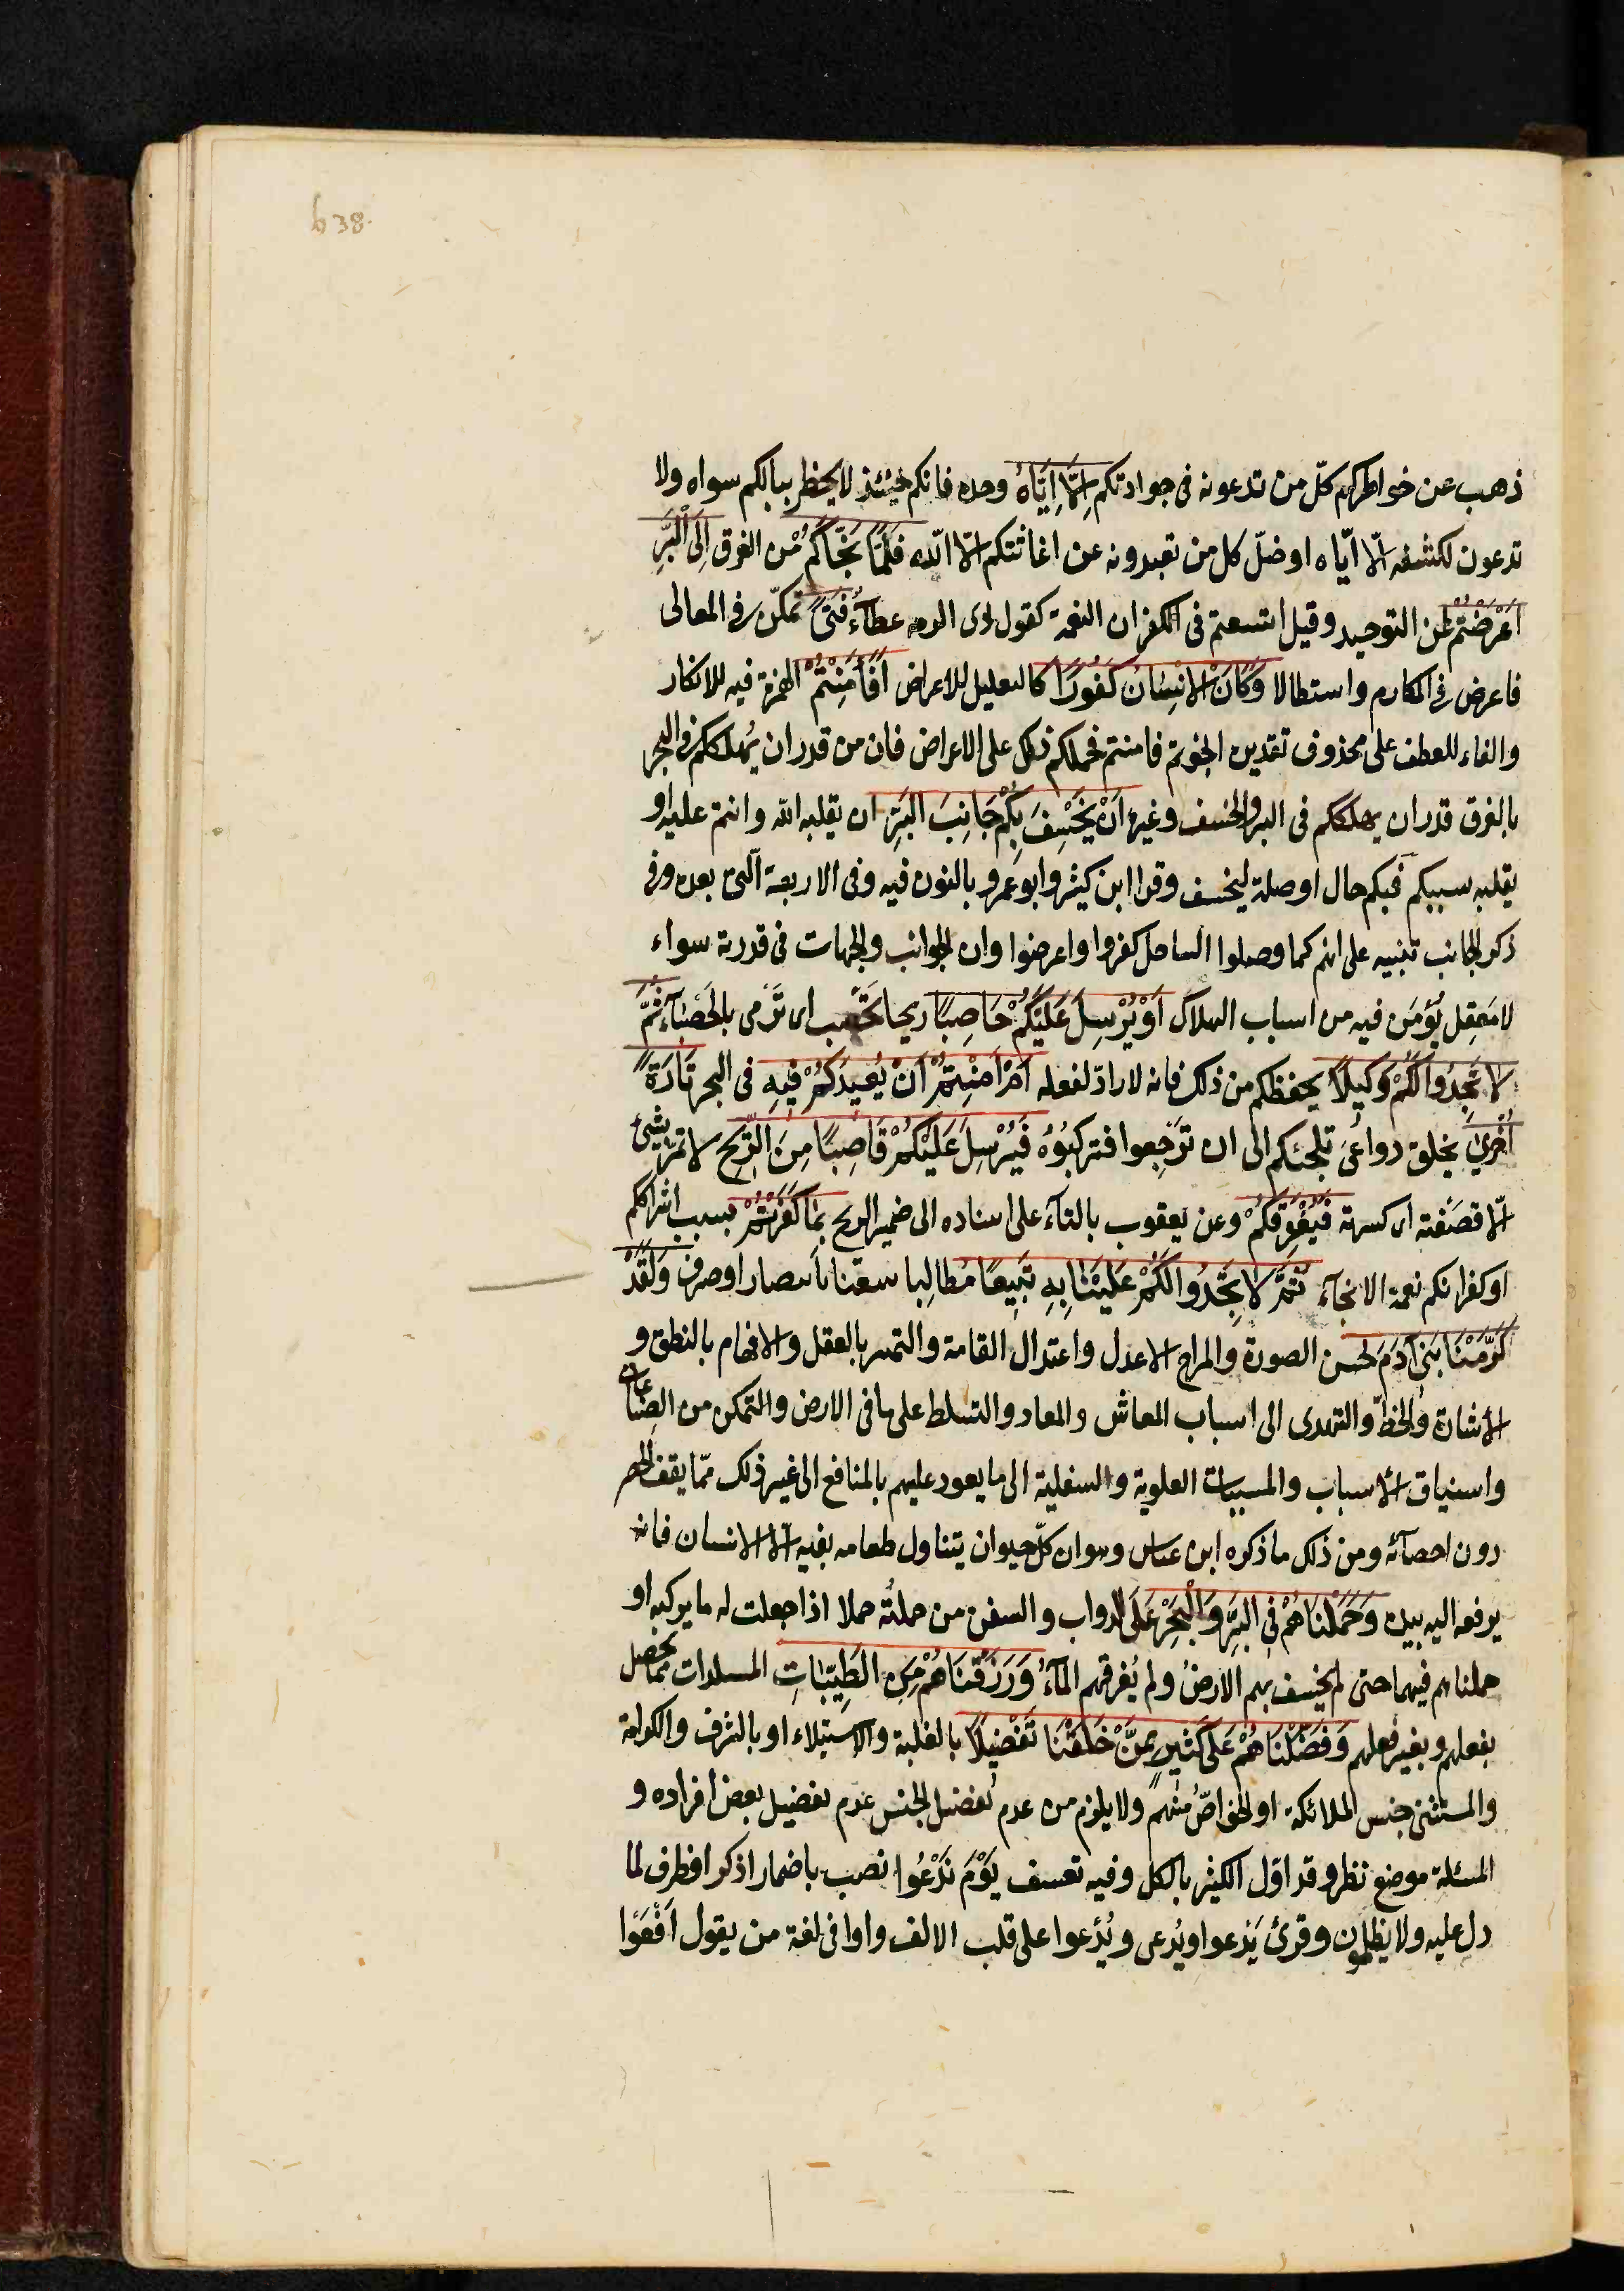 b 38.
ذهب عن خواطركم كلّ من تدعونه فى حوادثكم اِلَّا اِيَّاهُ وحده فانكم حينئذ لا يخطر ببالكم سواه ولا
تدعون لكشفه الّا ايّاه او ضلّ كل من تعبدونه عن اغاثتكم الّا الله فَلَمَّا نَجّٰاكُمْ من الغرق اِلَى الْبَرِّ
اَعْرَضْتُمْ عن التوحيد وقيل اتسعتم فى الكفران النعمة كقول ذى الرمه عطآءُ فَتىً تمكّن فى المعالى
فاعرض فى المكارم واستطالا وَكَانَ الْاِنْسَانُ كَفُورًا كالتعليل للاعراض اَفَاَمِنْتُمْ الهمزة فيه للانكار
والفاء للعطف على محذوف تقديره انجوتم فامنتم فحملكم ذلك على الاعراض فان من قدر ان يُهلككم فى البحر
بالغرق قدر ان يهلككم فى البر والخسف وغيره اَنْ يَخْسِفَ بِكُمْ جَانِبَ الْبَرِّ ان يقلبه الله وانتم عليه او
يقلبه بسببكم فبكم حال او صلة ليخسف وقرا ابن كثير وابو عمرو بالنون فيه وفى الاربعة الّتى بعده وفى
ذكر الجانب تنبيه على انهم كما وصلوا الساحل كفروا واعرضوا وان الجوانب والجهات فى قدرته سواء
لا مَعقِل يُؤمَن فيه من اسباب الهلاك اَوْ يُرْسِلَ عَلَيْكُمْ حَاصِبًا ريحا تحصب اى تَرْمى بالحَصْبآء ثُمَّ
لَا تَجِدُوا لَكُمْ وَكِيلًا يحفظكم من ذلك فانه لا رادّ لفعله اَمْ اَمِنْتُمْ اَنْ يُعِيدَكُمْ فِيهِ فى البحر تَارَةً
اُخْرٰى بخلق دواعى تلجئكم الى ان تَرجعوا فتركبُوُه فَيُرْسِلَ عَلَيْكُمْ قَاصِبًا مِنَ الرِّيحِ لا تمرّ بشئ
الّا قصَفته اى كسرته فَيُغْرِقَكُمْ وعن يعقوب بالتآء على اسناده الى ضمير الريح بِمَا كَفَرْتُمْ بسبب اشراككم
او كفرانكم نعمة الانجآء ثُمَّ لَا تَجِدُوا لَكُمْ عَلَيْنَا بِهِ تَبِيعًا مُطالِبا يتبعنا بانتصار او صرف وَلَقَدْ
كَرَّمْنَا بَنِى آدَمَ بحسن الصورة والمزاج الاعدل واعتدال القامة والتميز بالعقل والافهام بالنطق و
الاشارة والخطّ والتهدى الى اسباب المعاش والمعاد والتسلط على ما فى الارض والتمكن من الصناعات
واسنياق الاسباب والمسببات العلوية والسفلية الى ما يعود عليهم بالمنافع الى غير ذلك ممّا يقف الحصر
دون احصآئه ومن ذلك ما ذكره ابن عباس وهو ان كلّ حيوان يتناول طعامه بفيه الّا الانسان فانه
يرفعه اليه بيده وَحَمَلْنَاهُمْ فِى الْبَرِّ وَالْبَحْرِ عَلَى الدواب والسفن من حملتُه حملا اذا جعلت له ما يركبه او
حملناهم فيهما حتى لم يخسف بهم الارضُ ولم يُغرقهم المآءُ وَرَزَقْنَاهُمْ مِنَ الطَّيِّبٰاتِ المستلذات مما يحصل
بفعلهم وبغير فعلهم وَفَضَّلْنَاهُمْ عَلَى كَثِيرٍ مِمَّنْ خَلَقْنَا تَفْضِيلًا بالغلبة والاستيلاء او بالشرف والكرامة
والمستثنى جنس الملائكة او الخواصّ مِنْهم ولا يلزم من عدم تفضيل الجنس عدم تفضيل بعض افراده و
المسئلة موضع نظر وقد اوّل الكثير بالكل وفيه تعسف يَوْمَ نَدْعُوا نصب باضمار اذكر او ظرف لما
دل عليه ولا يظلمون وقرئ يَدعوا ويُدعى ويُدْعوا على قلب الالف واوا فى لغة من يقول اَفْعَوا